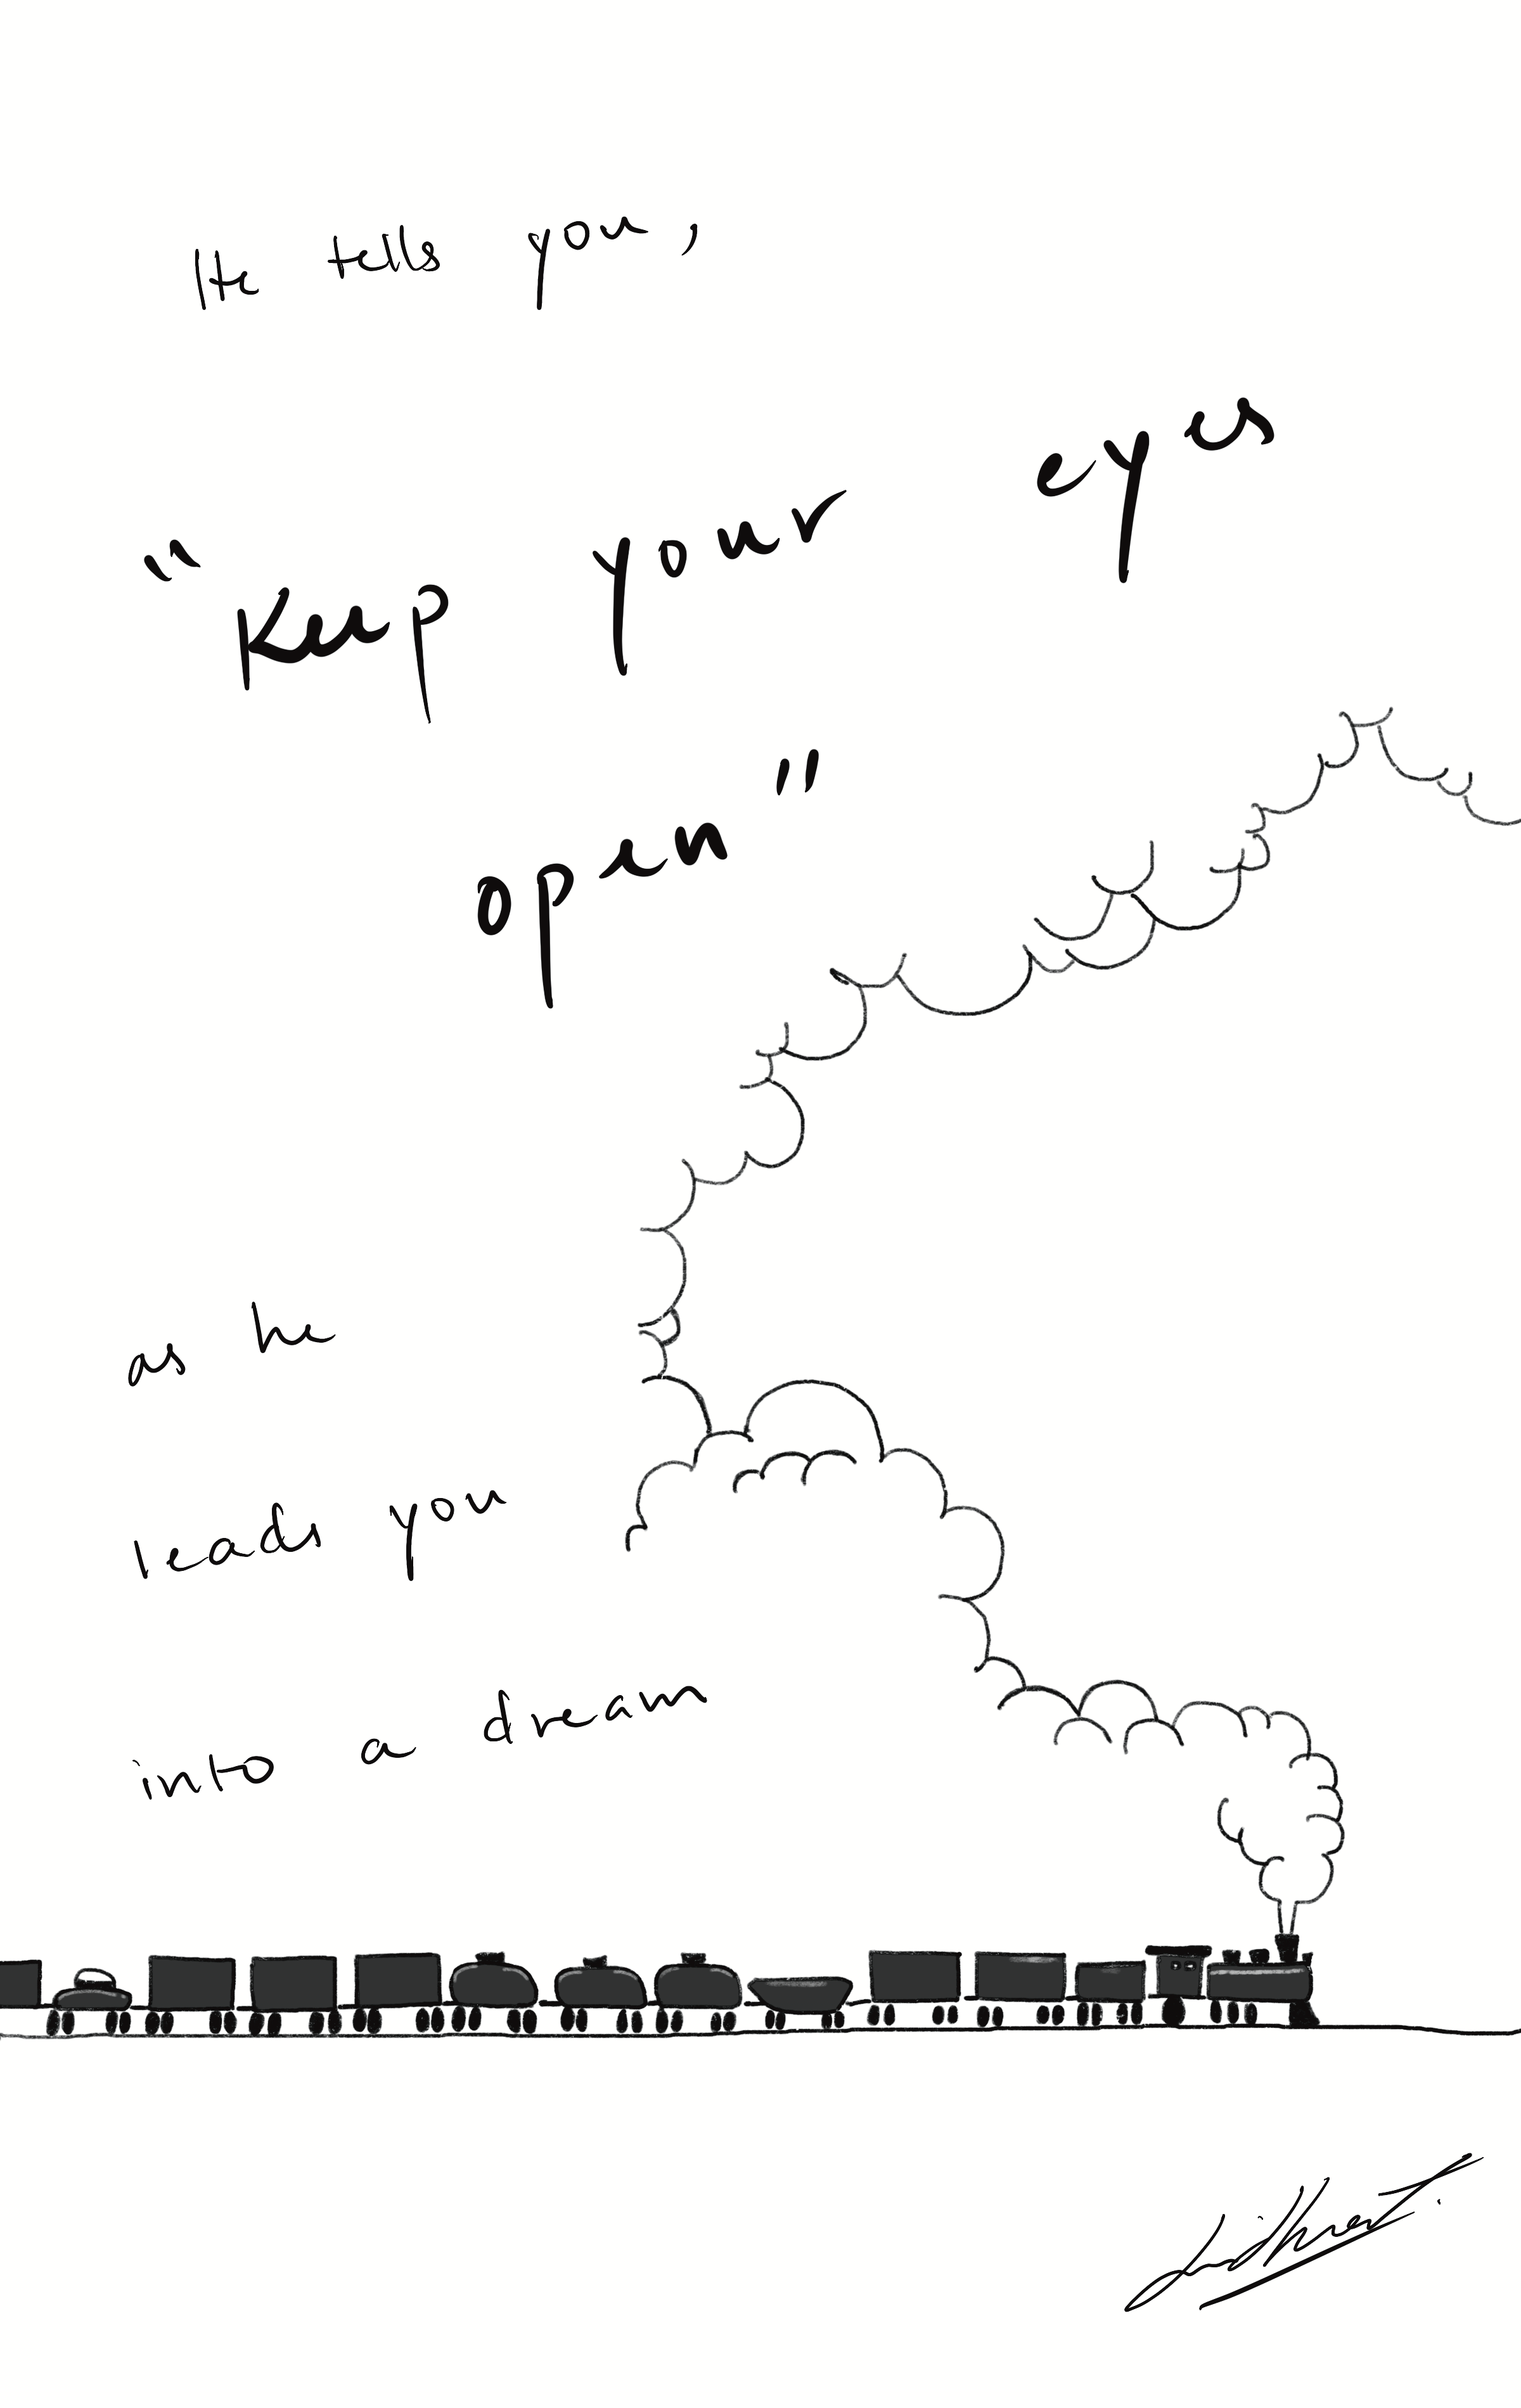 He tells you,
"Keep your eyes
open"
as he
leads you
into a dream